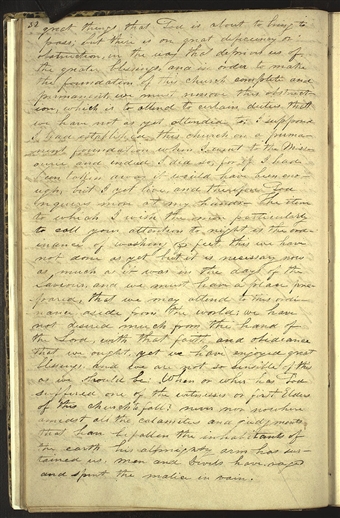 32
great things that God is about to bring to
pass; but there is one great deficiency or
obstruction, in the way that deprives us of
the greater blessings, and in order to make
the foundation of this church complete and
permanent, we must remove this obstruct-
ion, which is to attend to certain duties that
we have not as yet attended to. I supposed
I had established this church on a perma-
nent foundation when I went to the Miss-
ouri and indeed I did so, for if I had
been taken away it would have been eno-
ugh, but I yet live, and therefore God
requires more at my hands. The item
to which I wish the more particularly
to call your attention to night is the ordi-
nance of washing of feet, this we have
not done as yet but it is necessary now
as much as it was in the days of the
Saviour, and we must have a place pre-
pared, that we may attend to this ordi-
nance, aside from the world; we have
not desired much from the hand of
the Lord, with that faith and obediance
that we ought, yet we have enjoyed great
blessings, and we are not so sensible of this
as we should be. When or wher has God
suffered one of the witnesses or first Elders
of this church to fall? never nor nowhere
amidst all the calamities and judgments
that have befallen the inhabitants of
the earth his almighty arm has sus-
tained us, men and Devils have raged
and spent the malice in vain.